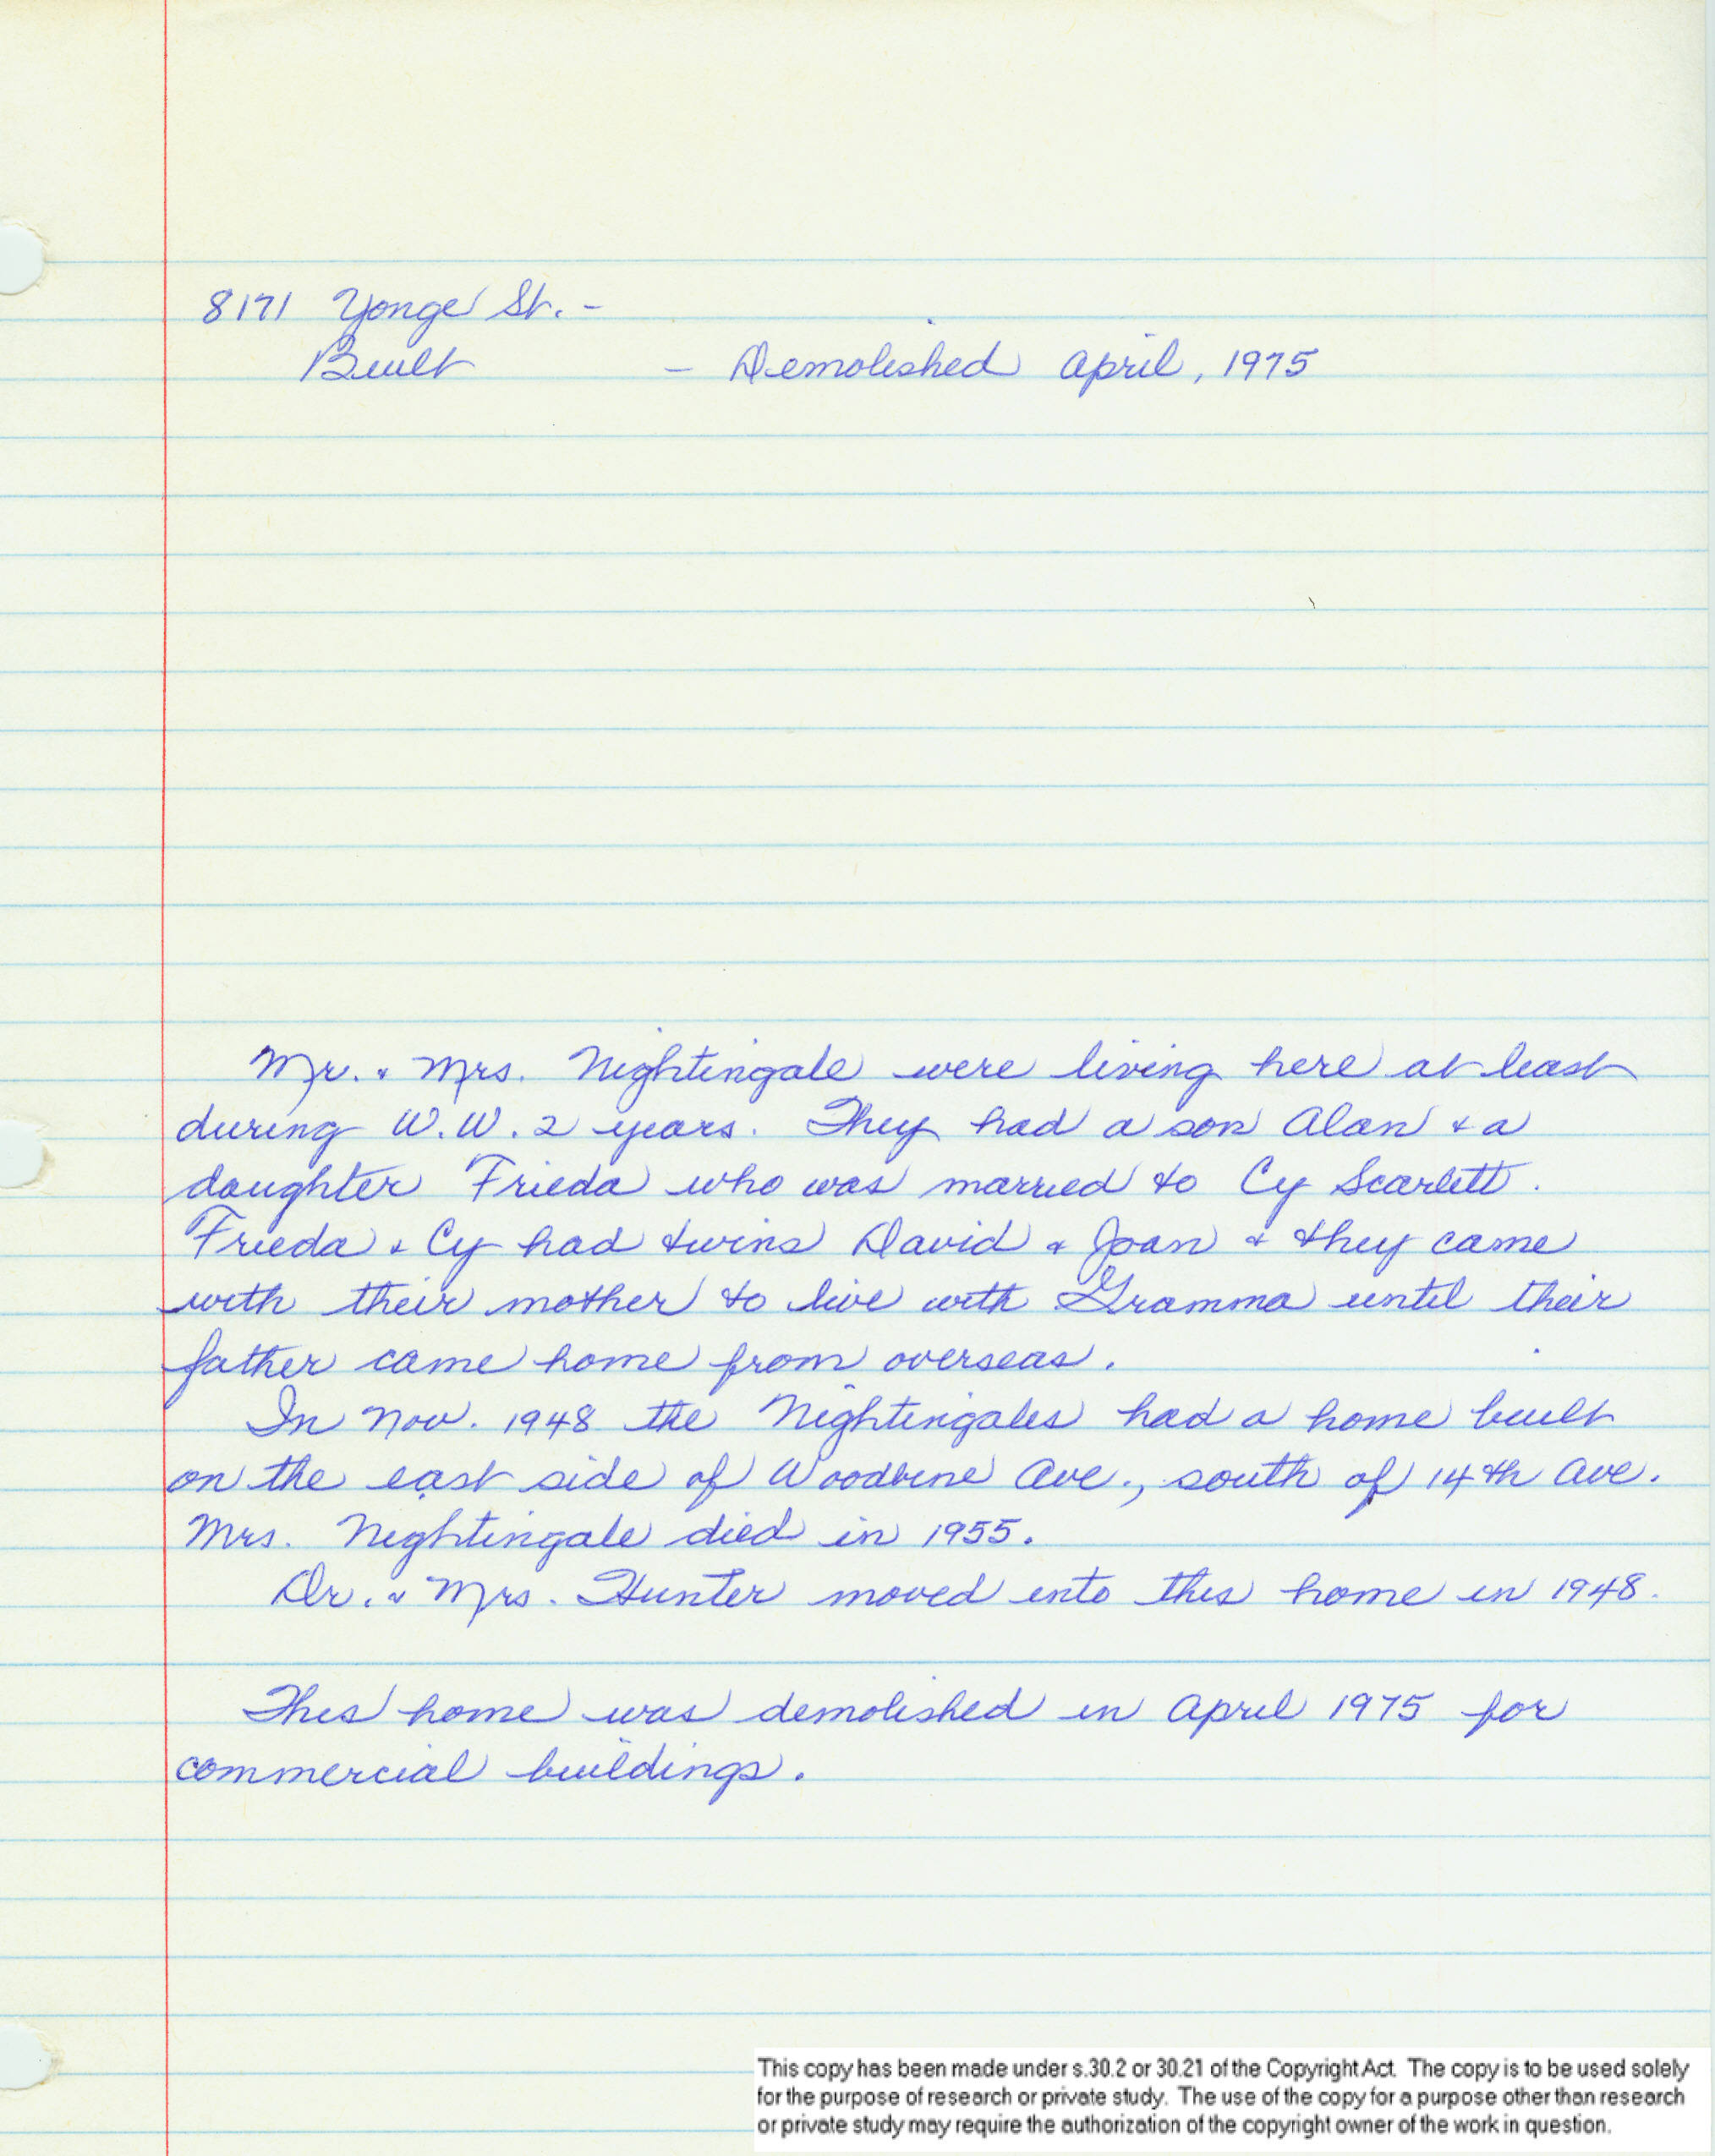 8171 Yonge St. -
Built - Demolished April, 1975
Mr. & Mrs. Nightingale were living here at least
during W.W. 2 years. They had a son Alan & a
daughter Frieda who was married to Cy Scarlett.
Frieda & Cy had twins David & Joan & they came
with their mother to live with Gramma until their
father came home from overseas.
In Nov. 1948 the Nightingales had a home built
on the east side of Woodbine Ave., south of 14th Ave.
Mrs. Nightingale died in 1955.
Dr. & Mrs. Hunter moved into this home in 1948.
This home was demolished in April 1975 for
commercial buildings.
This copy has been made under s.30.2 or 30.21 of the Copyright Act. The copy is to be used solely
for the purpose of research or private study. The use of the copy for a purpose other than research
or private study may require the authorization of the copyright owner of the work in question.